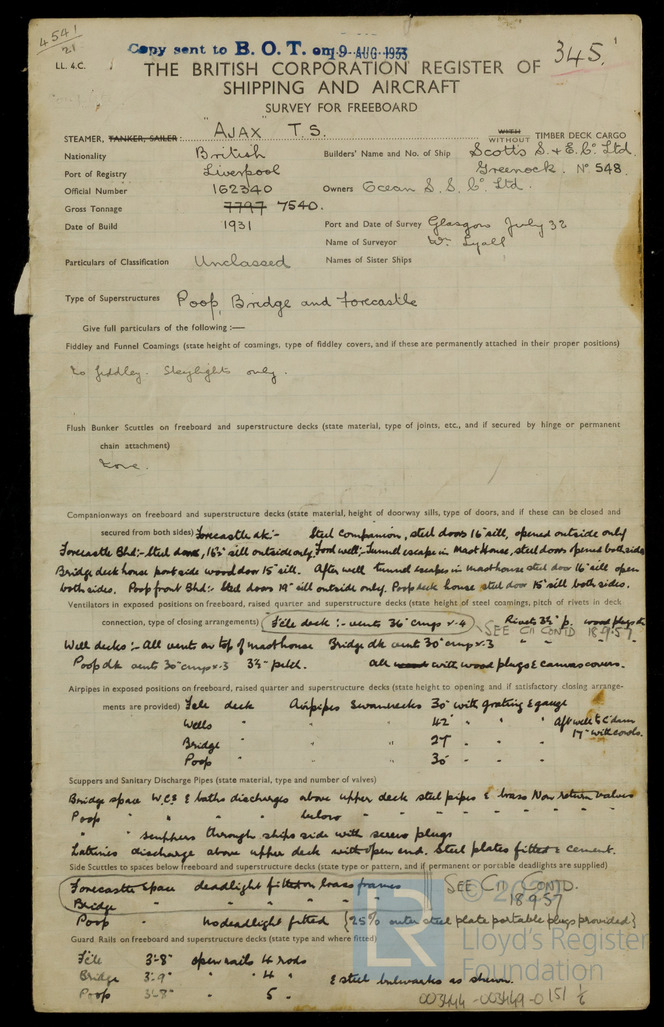 4541
21
Copy sent to B. O. T. on 19 AUG 1933
345.
1
LL. 4.C.
THE BRITISH CORPORATION REGISTER OF
SHIPPING AND AIRCRAFT
SURVEY FOR FREEBOARD
STEAMER, TANKER, SAILER "AJAX" T.S. WITH WITHOUT TIMBER DECK CARGO
Nationality British Builders' Name and No. of Ship Scotts S. & E. Co Ltd.
Port of Registry Liverpool Greenock. No 548.
Official Number 162340 Owners Ocean S. S. Co. Ltd.
Gross Tonnage 7797 7540.
Date of Build 1931 Port and Date of Survey Glasgow July 32
Name of Surveyor Wm Lyall
Particulars of Classification Unclassed Names of Sister Ships
Type of Superstructures Poop, Bridge and Forecastle
Give full particulars of the following :—
Fiddley and Funnel Coamings (state height of coamings, type of fiddley covers, and if these are permanently attached in their proper positions)
No fiddley. Skylights only.
Flush Bunker Scuttles on freeboard and superstructure decks (state material, type of joints, etc., and if secured by hinge or permanent
chain attachment)
None.
Companionways on freeboard and superstructure decks (state material, height of doorway sills, type of doors, and if these can be closed and
secured from both sides) Forecastle dk:- Steel Companion, steel doors 16" sill, opened outside only
Forecastle Bhd:- Steel doors, 16½" sill outside only. Ford well:- Tunnel escape in Mast House, steel doors opened both sides
Bridge deck house port side wood door 15" sill. After well tunnel escape in masthouse steel door 16" sill open
both sides. Poop front Bhd:- Steel doors 19" sill outside only. Poop deck house steel door 15" sill both sides.
Ventilators in exposed positions on freeboard, raised quarter and superstructure decks (state height of steel coamings, pitch of rivets in deck
connection, type of closing arrangements) Fcle deck :- vents 36" cmgs x .4 Rivets 3½" p. wood plugs
SEE C11 CONTD 18.9.57
Well decks :- All vents on top of masthouse Bridge dk vent 30" cmgs x .3 " " "
Poop dk vents 30" cmgs x .3 3½" pitch. All with wood plugs & canvas covers.
Airpipes in exposed positions on freeboard, raised quarter and superstructure decks (state height to opening and if satisfactory closing arrange-
ments are provided) Fcle deck Airpipes Swannecks 30" with grating & gauge
Wells " " 42" " " " Aft well to C'dam
17" with covds.
Bridge " " 27" " "
Poop " " 30" " "
Scuppers and Sanitary Discharge Pipes (state material, type and number of valves)
Bridge space W.CS & baths discharges above upper deck steel pipes & brass Non return valves
Poop " " " below " " " " " " " "
" " scuppers through ships side with screw plugs
Latrines discharge above upper deck with open end. Steel plates fitted & cement.
Side Scuttles to spaces below freeboard and superstructure decks (state type or pattern, and if permanent or portable deadlights are supplied)
Forecastle space deadlight fitted on brass frames SEE C11 CONTD.
Bridge " " " " " " 18.9.57
Poop " No deadlight fitted {25% outer steel plate portable plugs provided}
Guard Rails on freeboard and superstructure decks (state type and where fitted)
Fcle 3'-8" open rails 4 rods
Bridge 3'-9" " " 4 " & steel bulwarks as shewn.
Poop 3'-8" " 5 "
LR
Lloyd's Register
Foundation
003444-003449-0151 1/6